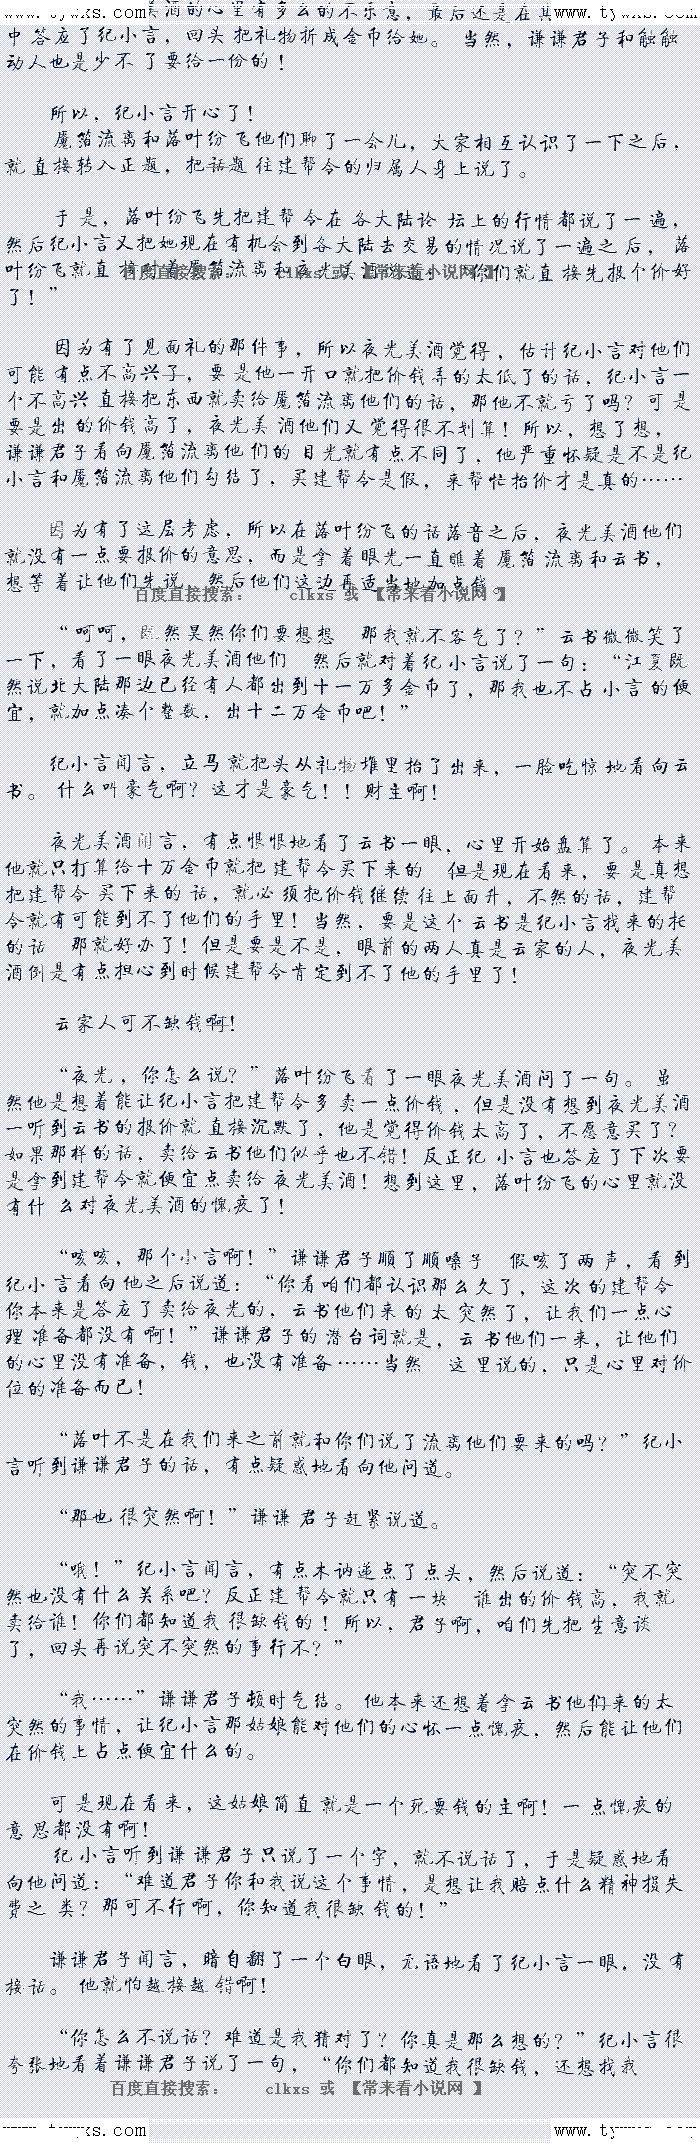 www.tywxs.com美酒的心里有多么的不乐意，最后还是在其www.tywxs.com
中答应了纪小言，回头把礼物折成金币给她。当然，谦谦君子和触触
动人也是少不了要给一份的！
所以，纪小言开心了！
魔笛流离和落叶纷飞他们聊了一会儿，大家相互认识了一下之后，
就直接转入正题，把话题往建帮令的归属人身上说了。
于是，落叶纷飞先把建帮令在各大陆论坛上的行情都说了一遍，
然后纪小言又把她现在有机会到各大陆去交易的情况说了一遍之后，落
叶纷飞就直接对着魔笛流离和夜光美酒说道：“你们就直接先报个价好
百度直接搜索： clkxs 或 【常来看小说网】
了！”
因为有了见面礼的那件事，所以夜光美酒觉得，估计纪小言对他们
可能有点不高兴了，要是他一开口就把价钱弄的太低了的话，纪小言一
个不高兴直接把东西就卖给魔笛流离他们的话，那他不就亏了吗？可是
要是出的价钱高了，夜光美酒他们又觉得很不划算！所以，想了想，
谦谦君子看向魔笛流离他们的目光就有点不同了，他严重怀疑是不是纪
小言和魔笛流离他们勾结了，买建帮令是假，来帮忙抬价才是真的……
因为有了这层考虑，所以在落叶纷飞的话落音之后，夜光美酒他们
就没有一点要报价的意思，而是拿着眼光一直瞧着魔笛流离和云书，
想等着让他们先说，然后他们这边再适当地加点钱。
百度直接搜索： clkxs 或 【常来看小说网】
“呵呵，既然昊然你们要想想 那我就不客气了？”云书微微笑了
一下，看了一眼夜光美酒他们 然后就对着纪小言说了一句：“江夏既
然说北大陆那边已经有人都出到十一万多金币了，那我也不占小言的便
宜，就加点凑个整数，出十二万金币吧！”
纪小言闻言，立马就把头从礼物堆里抬了出来，一脸吃惊地看向云
书。什么叫豪气啊？这才是豪气！！财主啊！
夜光美酒闻言，有点恨恨地看了云书一眼，心里开始盘算了。本来
他就只打算给十万金币就把建帮令买下来的 但是现在看来，要是真想
把建帮令买下来的话，就必须把价钱继续往上面升，不然的话，建帮
令就有可能到不了他们的手里！当然，要是这个云书是纪小言找来的托
的话 那就好办了！但是要是不是，眼前的两人真是云家的人，夜光美
酒倒是有点担心到时候建帮令肯定到不了他的手里了！
云家人可不缺钱啊！
“夜光，你怎么说？”落叶纷飞看了一眼夜光美酒问了一句。虽
然他是想着能让纪小言把建帮令多卖一点价钱，但是没有想到夜光美酒
一听到云书的报价就直接沉默了，他是觉得价钱太高了，不愿意买了？
如果那样的话，卖给云书他们似乎也不错！反正纪小言也答应了下次要
是拿到建帮令就便宜点卖给夜光美酒！想到这里，落叶纷飞的心里就没
有什么对夜光美酒的愧疚了！
“咳咳，那个小言啊！”谦谦君子顺了顺嗓子 假咳了两声，看到
纪小言看向他之后说道：“你看咱们都认识那么久了，这次的建帮令
你本来是答应了卖给夜光的，云书他们来的太突然了，让我们一点心
理准备都没有啊！”谦谦君子的潜台词就是，云书他们一来，让他们
的心里没有准备，钱，也没有准备……当然 这里说的，只是心里对价
位的准备而已！
“落叶不是在我们来之前就和你们说了流离他们要来的吗？”纪小
言听到谦谦君子的话，有点疑惑地看向他问道。
“那也很突然啊！”谦谦君子赶紧说道。
“哦！”纪小言闻言，有点木讷遂点了点头，然后说道：“突不突
然也没有什么关系吧？反正建帮令就只有一块 谁出的价钱高，我就
卖给谁！你们都知道我很缺钱的！所以，君子啊，咱们先把生意谈
了，回头再说突不突然的事行不？”
“我……”谦谦君子顿时气结。他本来还想着拿云书他们来的太
突然的事情，让纪小言那姑娘能对他们的心怀一点愧疚，然后能让他们
在价钱上占点便宜什么的。
可是现在看来，这姑娘简直就是一个死要钱的主啊！一点愧疚的
意思都没有啊！
纪小言听到谦谦君子只说了一个字，就不说话了，于是疑惑地看
向他问道：“难道君子你和我说这个事情，是想让我赔点什么精神损失
费之类？那可不行啊，你知道我很缺钱的！”
谦谦君子闻言，暗自翻了一个白眼，无语地看了纪小言一眼，没有
接话。他就怕越接越错啊！
“你怎么不说话？难道是我猜对了？你真是那么想的？”纪小言很
夸张地看着谦谦君子说了一句，“你们都知道我很缺钱，还想找我
百度直接搜索： clkxs 或 【常来看小说网】
www.tywxs.com www.tywxs.com